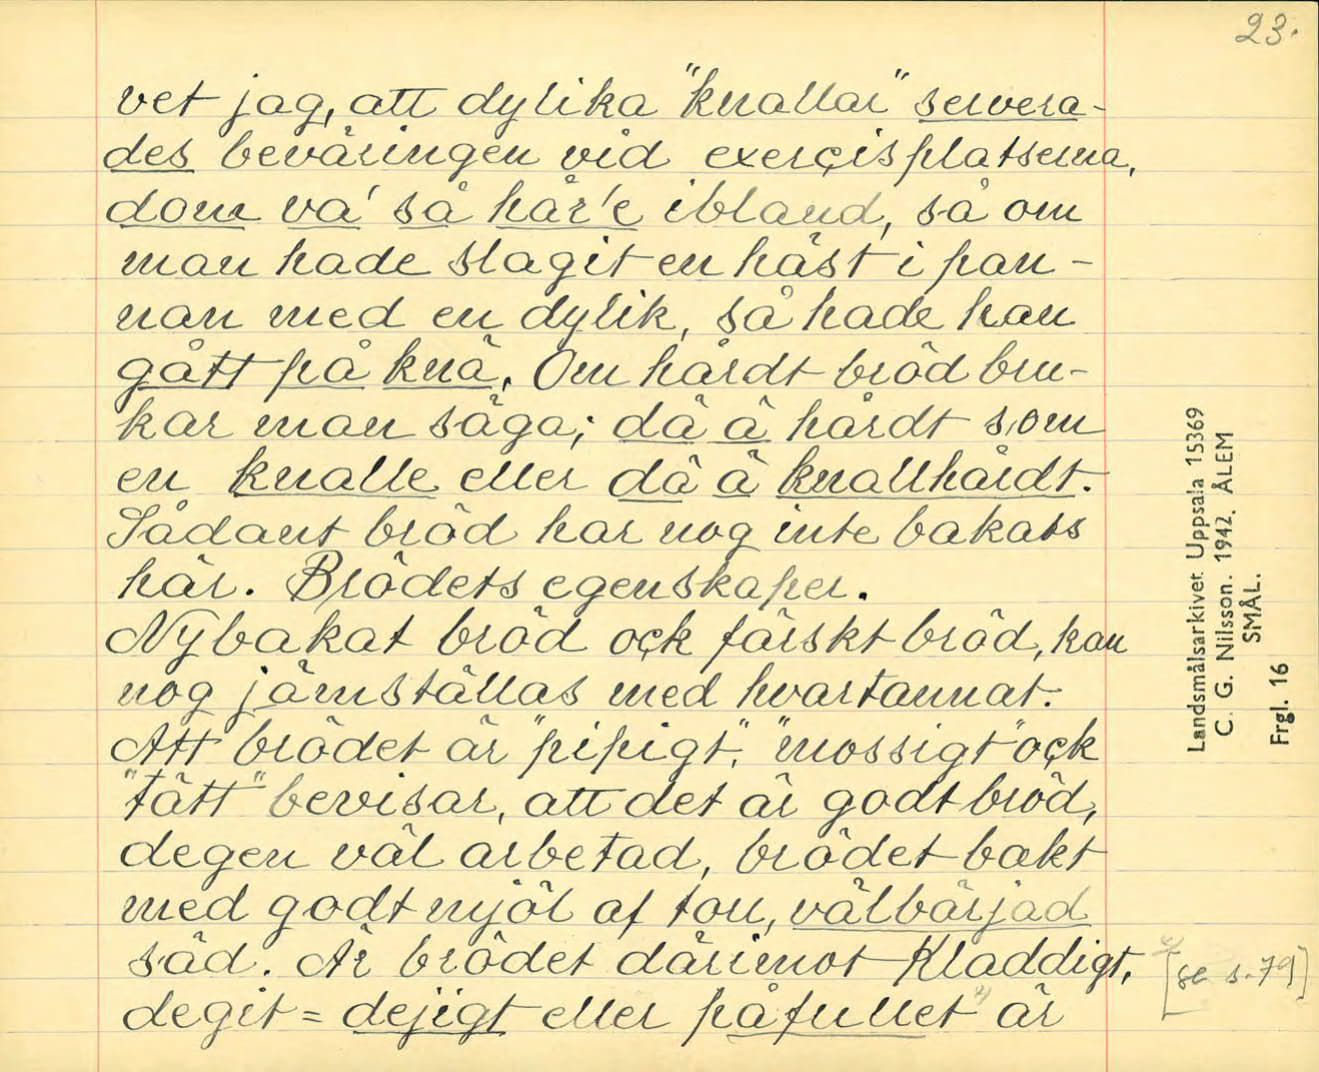 23.
vet jag, att dylika "knallar" servera-
des beväringen vid exerçisplatserna,
dom va' så hår'e ibland, så om
man hade slagit en häst i pan-
nan med en dylik, så hade han
gått på knä. Om hårdt bröd bru-
kar man säga; dä ä hårdt som
en knalle eller dä ä knallhårdt.
Sådant bröd har nog inte bakats
här. Brödets egenskaper.
Nybakat bröd oçk färskt bröd, kan
nog jämställas med hvartannat.
Att brödet är "pipigt", "mossigt" oçk
"tätt" bevisar, att det är godt bröd,
degen väl arbetad, brödet bakt
med godt mjöl af torr, välbärjad
säd. Är brödet därimot Kladdigt,
degit = dejigt eller påfullet x) är
x) [se s. 79]
Landsmålsarkivet Uppsala 15369
C. G. Nilsson. 1942. ÅLEM
SMÅL.
Frgl. 16